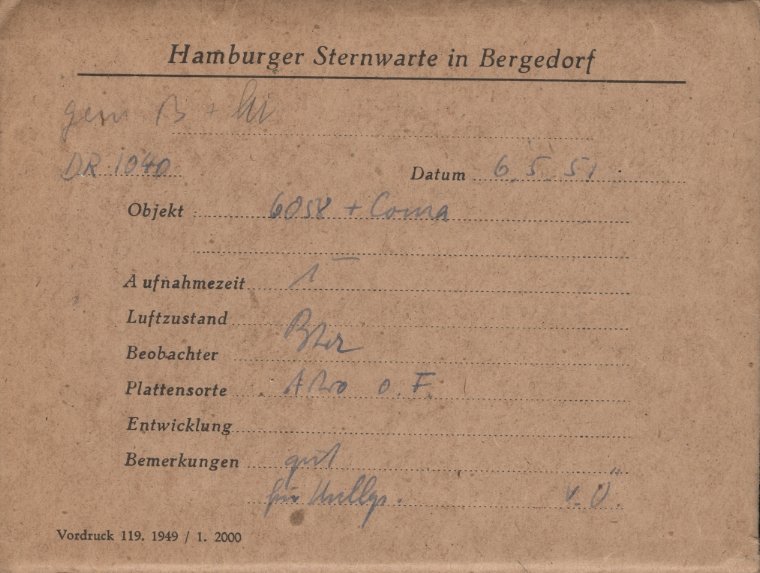 Hamburger Sternwarte in Bergedorf
gem B + M
DR 1040 Datum 6.5.51
Objekt 6058 + Coma
Aufnahmezeit 1
Luftzustand
Beobachter
Plattensorte Astro o. F.
Entwicklung
Bemerkungen gut
für v. Ö.
Vordruck 119. 1949 / 1. 2000